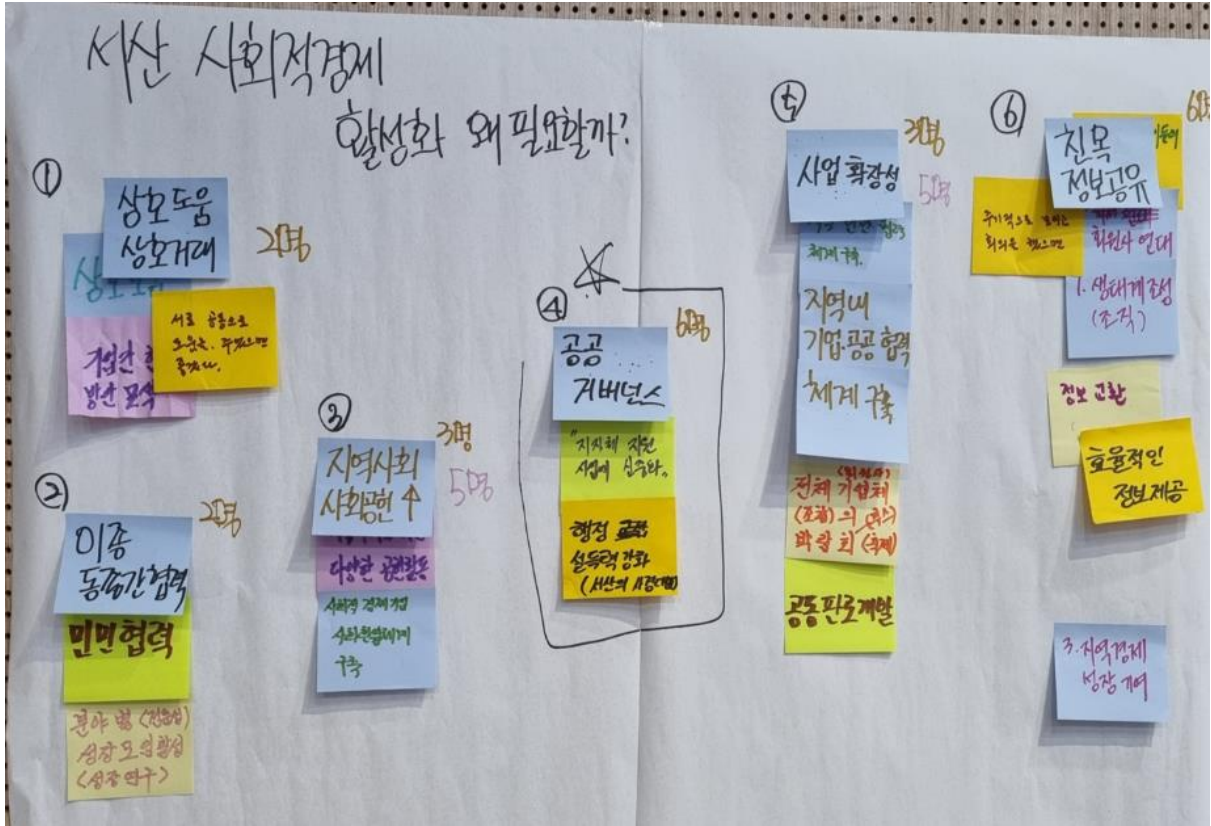 서산 사회적경제
활성화 왜 필요할까?
①
상호도움
상호거래
2명
서로 공통으로
도움을 주었으면
좋겠다.
기업간
방안 모색
②
이종
동종간협력
2명
민민협력
분야별
성장모임활성
<성장연구>
③
지역사회
사회공헌↑
3명
5명
다양한 공헌활동
사회적 경제기업
구축
④
공공
거버넌스
6명
"지자체 지원
사업에 집중화"
행정
설득력 강화
⑤
사업 확장성
3명
5명
체계 구축
지역내
기업·공공 협력
체계 구축
전체 기업체
박람회 (축제)
공동판로개발
⑥
친목
정보공유
6명
주기적으로 모이는
회의를 했으면
회원사 연대
1. 생태계조성
(조직)
정보 교환
효율적인
정보제공
3. 지역경제
성장 기여